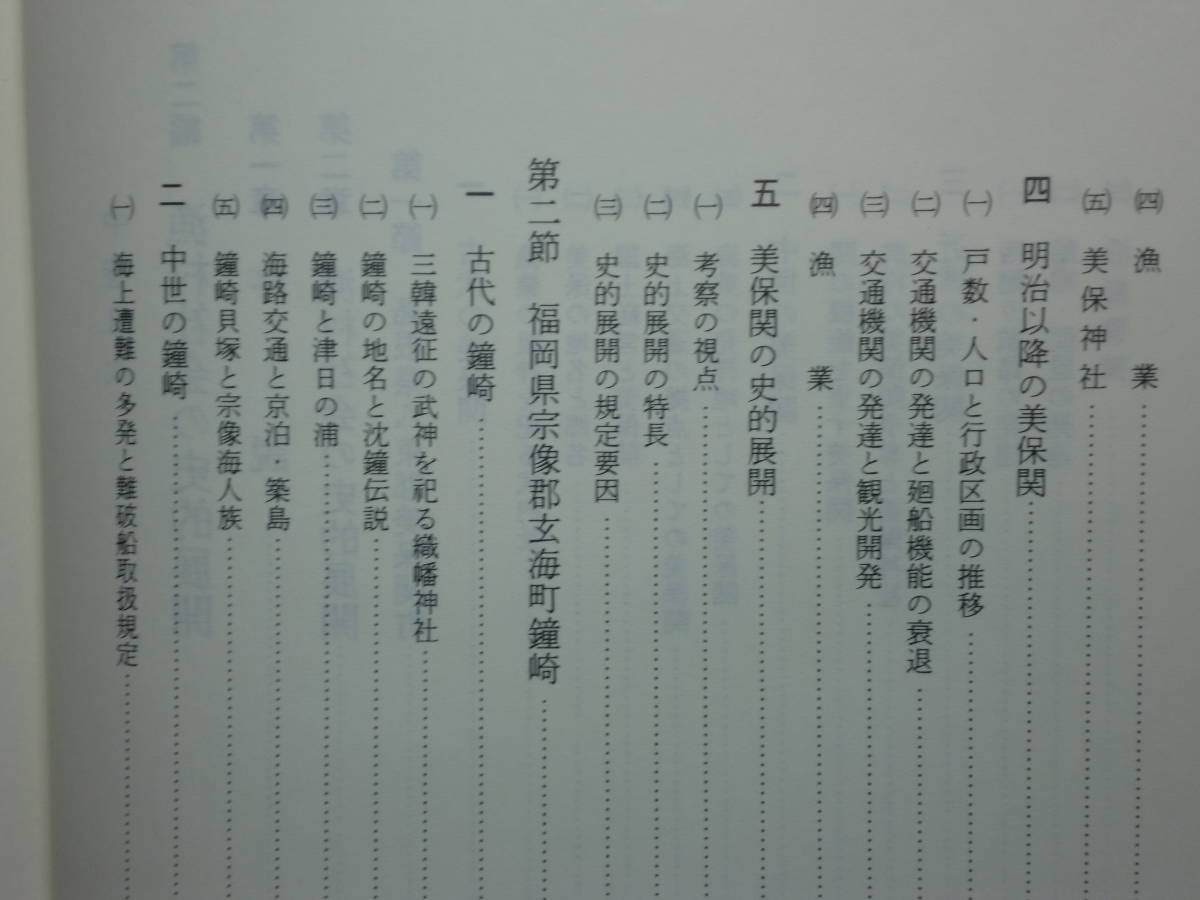 ㈣ 漁業
㈤ 美保神社
四 明治以降の美保関
㈠ 戸数・人口と行政区画の推移
㈡ 交通機関の発達と廻船機能の衰退
㈢ 交通機関の発達と観光開発
㈣ 漁業
五 美保関の史的展開
㈠ 考察の視点
㈡ 史的展開の特長
㈢ 史的展開の規定要因
第二節 福岡県宗像郡玄海町鐘崎
一 古代の鐘崎
㈠ 三韓遠征の武神を祀る織幡神社
㈡ 鐘崎の地名と沈鐘伝説
㈢ 鐘崎と津日の浦
㈣ 海路交通と京泊・築島
㈤ 鐘崎貝塚と宗像海人族
二 中世の鐘崎
㈠ 海上遭難の多発と難破船取扱規定